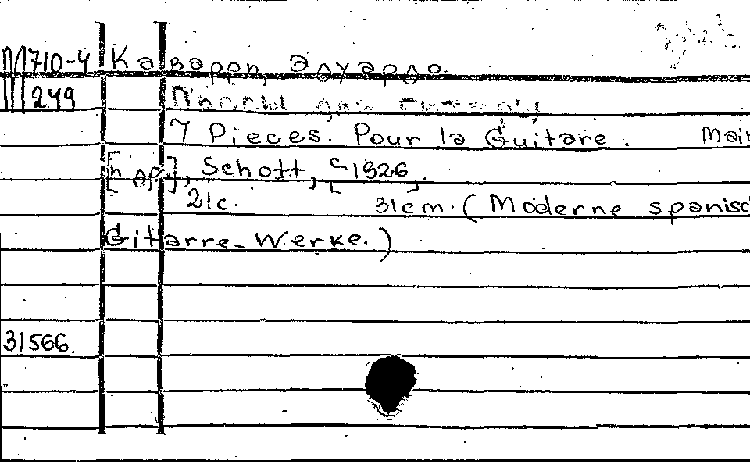 М710-4 Каварро, Эдуардо.
249 Пьесы для гитары
7 Pieces. Pour la Guitare. Main
[и др.], Schott, [c1926].
21c. 31cm. (Moderne spanisc
Gitarre-Werke.)
31566